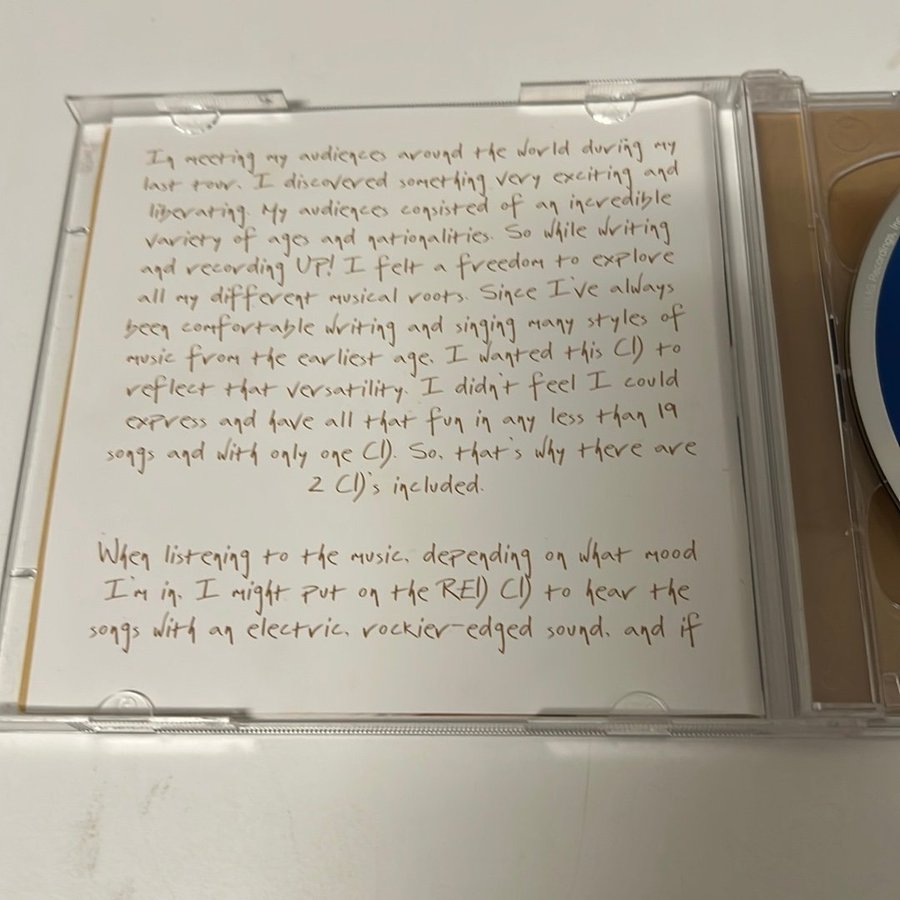 In meeting my audiences around the world during my
last tour, I discovered something very exciting and
liberating. My audiences consisted of an incredible
variety of ages and nationalities. So while writing
and recording UP! I felt a freedom to explore
all my different musical roots. Since I've always
been comfortable writing and singing many styles of
music from the earliest age, I wanted this CD to
reflect that versatility. I didn't feel I could
express and have all that fun in any less than 19
songs and with only one CD. So, that's why there are
2 CD's included.
When listening to the music, depending on what mood
I'm in, I might put on the RED CD to hear the
songs with an electric, rockier-edged sound, and if
Recordings, Inc